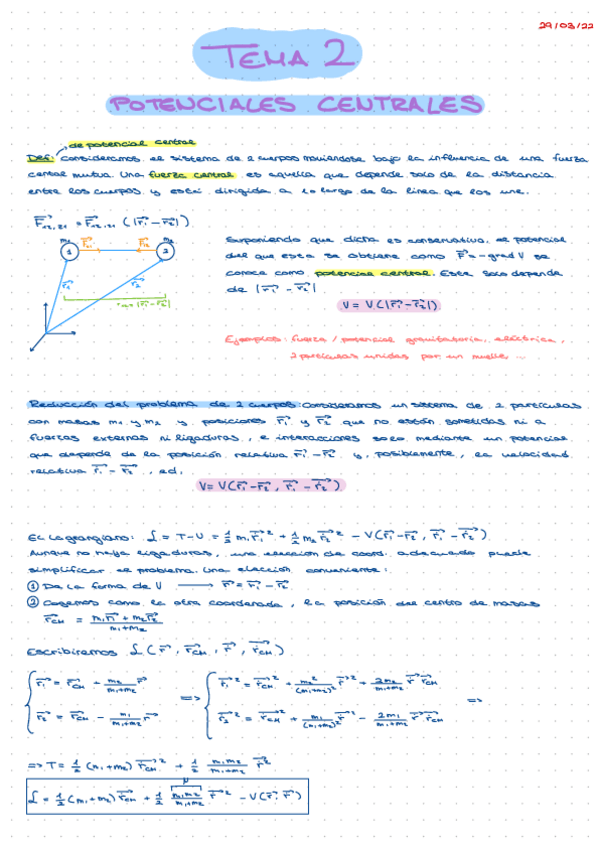 29/03/22
TEMA 2
POTENCIALES CENTRALES
de potencial central
Def: Consideramos el sistema de 2 cuerpos moviéndose bajo la influencia de una fuerza
central mutua. Una fuerza central es aquella que depende solo de la distancia
entre los cuerpos y está dirigida a lo largo de la línea que los une.
F⃗₁₂,₂₁ = F⃗₁₂,₂₁ (|r⃗₁ - r⃗₂|)
m₁ F⃗₂₁ F⃗₁₂ m₂
1 2
r⃗₁ r⃗₂
r₁₂ = |r⃗₁ - r⃗₂|
Suponiendo que dicha es conservativa, el potencial
del que esta se obtiene como F⃗ = -grad V se
conoce como potencial central. Este solo depende
de |r⃗₁ - r⃗₂|
V = V(|r⃗₁ - r⃗₂|)
Ejemplos: fuerza / potencial gravitatoria, eléctrica,
2 partículas unidas por un muelle ...
Reducción del problema de 2 cuerpos: Consideramos un sistema de 2 partículas
con masas m₁ y m₂ y posiciones r⃗₁ y r⃗₂ que no están sometidas ni a
fuerzas externas ni ligaduras, e interacciones solo mediante un potencial
que depende de la posición relativa r⃗₁ - r⃗₂ y, posiblemente, la velocidad
relativa ṙ⃗₁ - ṙ⃗₂, ed,
V = V(r⃗₁ - r⃗₂, ṙ⃗₁ - ṙ⃗₂)
El lagrangiano: L = T - U = ½ m₁ ṙ⃗₁² + ½ m₂ ṙ⃗₂² - V(r⃗₁ - r⃗₂, ṙ⃗₁ - ṙ⃗₂)
Aunque no haya ligaduras, una elección de coord. adecuada puede
simplificar el problema. Una elección conveniente:
① De la forma de V ⟶ r⃗ = r⃗₁ - r⃗₂
② Cogemos como la otra coordenada, la posición del centro de masas
r⃗CM = (m₁r⃗₁ + m₂r⃗₂)/(m₁+m₂)
Escribiremos L (r⃗, r⃗CM, ṙ⃗, ṙ⃗CM)
r⃗₁ = r⃗CM + m₂/(m₁+m₂) r⃗ => ṙ⃗₁² = ṙ⃗CM² + m₂²/(m₁+m₂)² ṙ⃗² + 2m₂/(m₁+m₂) ṙ⃗ ṙ⃗CM =>
r⃗₂ = r⃗CM - m₁/(m₁+m₂) r⃗ ṙ⃗₂² = ṙ⃗CM² + m₁/(m₁+m₂)² ṙ⃗² - 2m₁/(m₁+m₂) ṙ⃗ ṙ⃗CM
=> T = ½ (m₁+m₂) ṙ⃗CM² + ½ m₁m₂/(m₁+m₂) ṙ⃗²
μ
L = ½ (m₁+m₂) ṙ⃗CM² + ½ m₁m₂/(m₁+m₂) ṙ⃗² - V(r⃗, ṙ⃗)